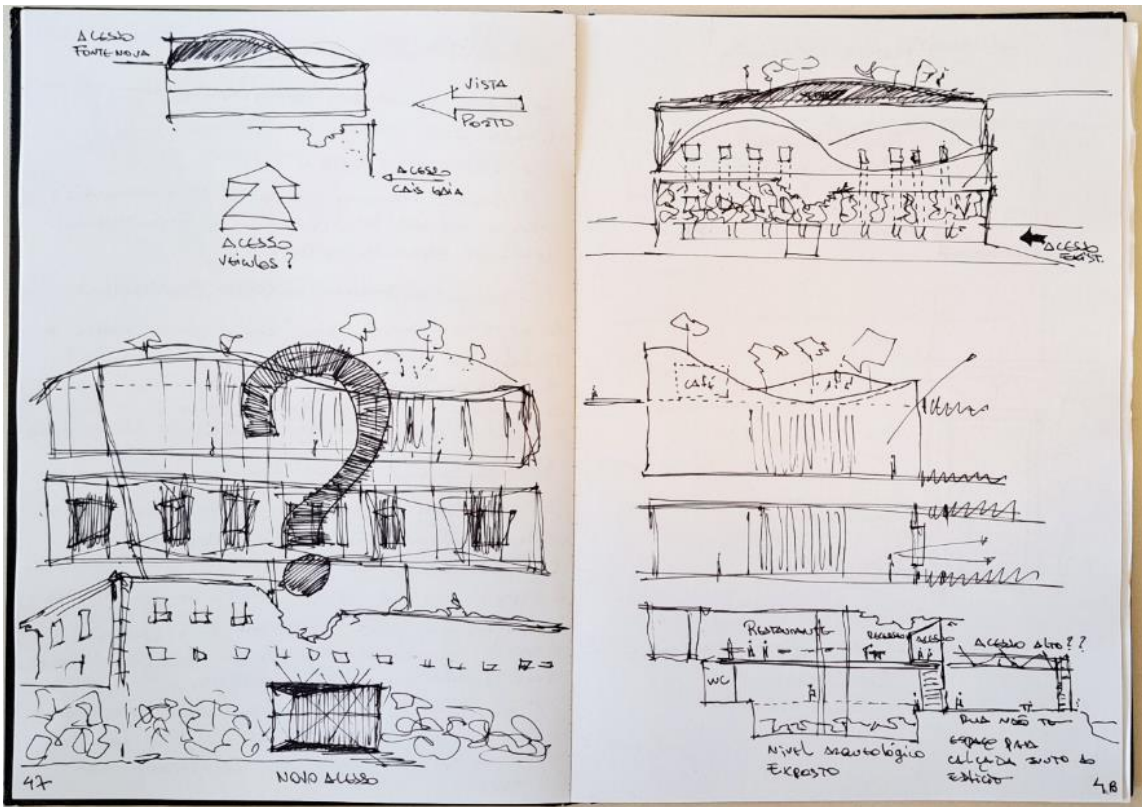 ACESSO
FONTE NOVA
VISTA
PORTO
ACESSO
CAIS GAIA
ACESSO
VEÍCULOS ?
?
NOVO ACESSO
47
ACESSO
EXIST.
CAFÉ
RESTAURANTE
RECEÇÃO
ACESSO
ACESSO ALTO ??
WC
NÍVEL ARQUEOLÓGICO
EXPOSTO
RUA NÃO TE
ESPAÇO PARA
CALÇADA JUNTO AO
EDIFÍCIO
48